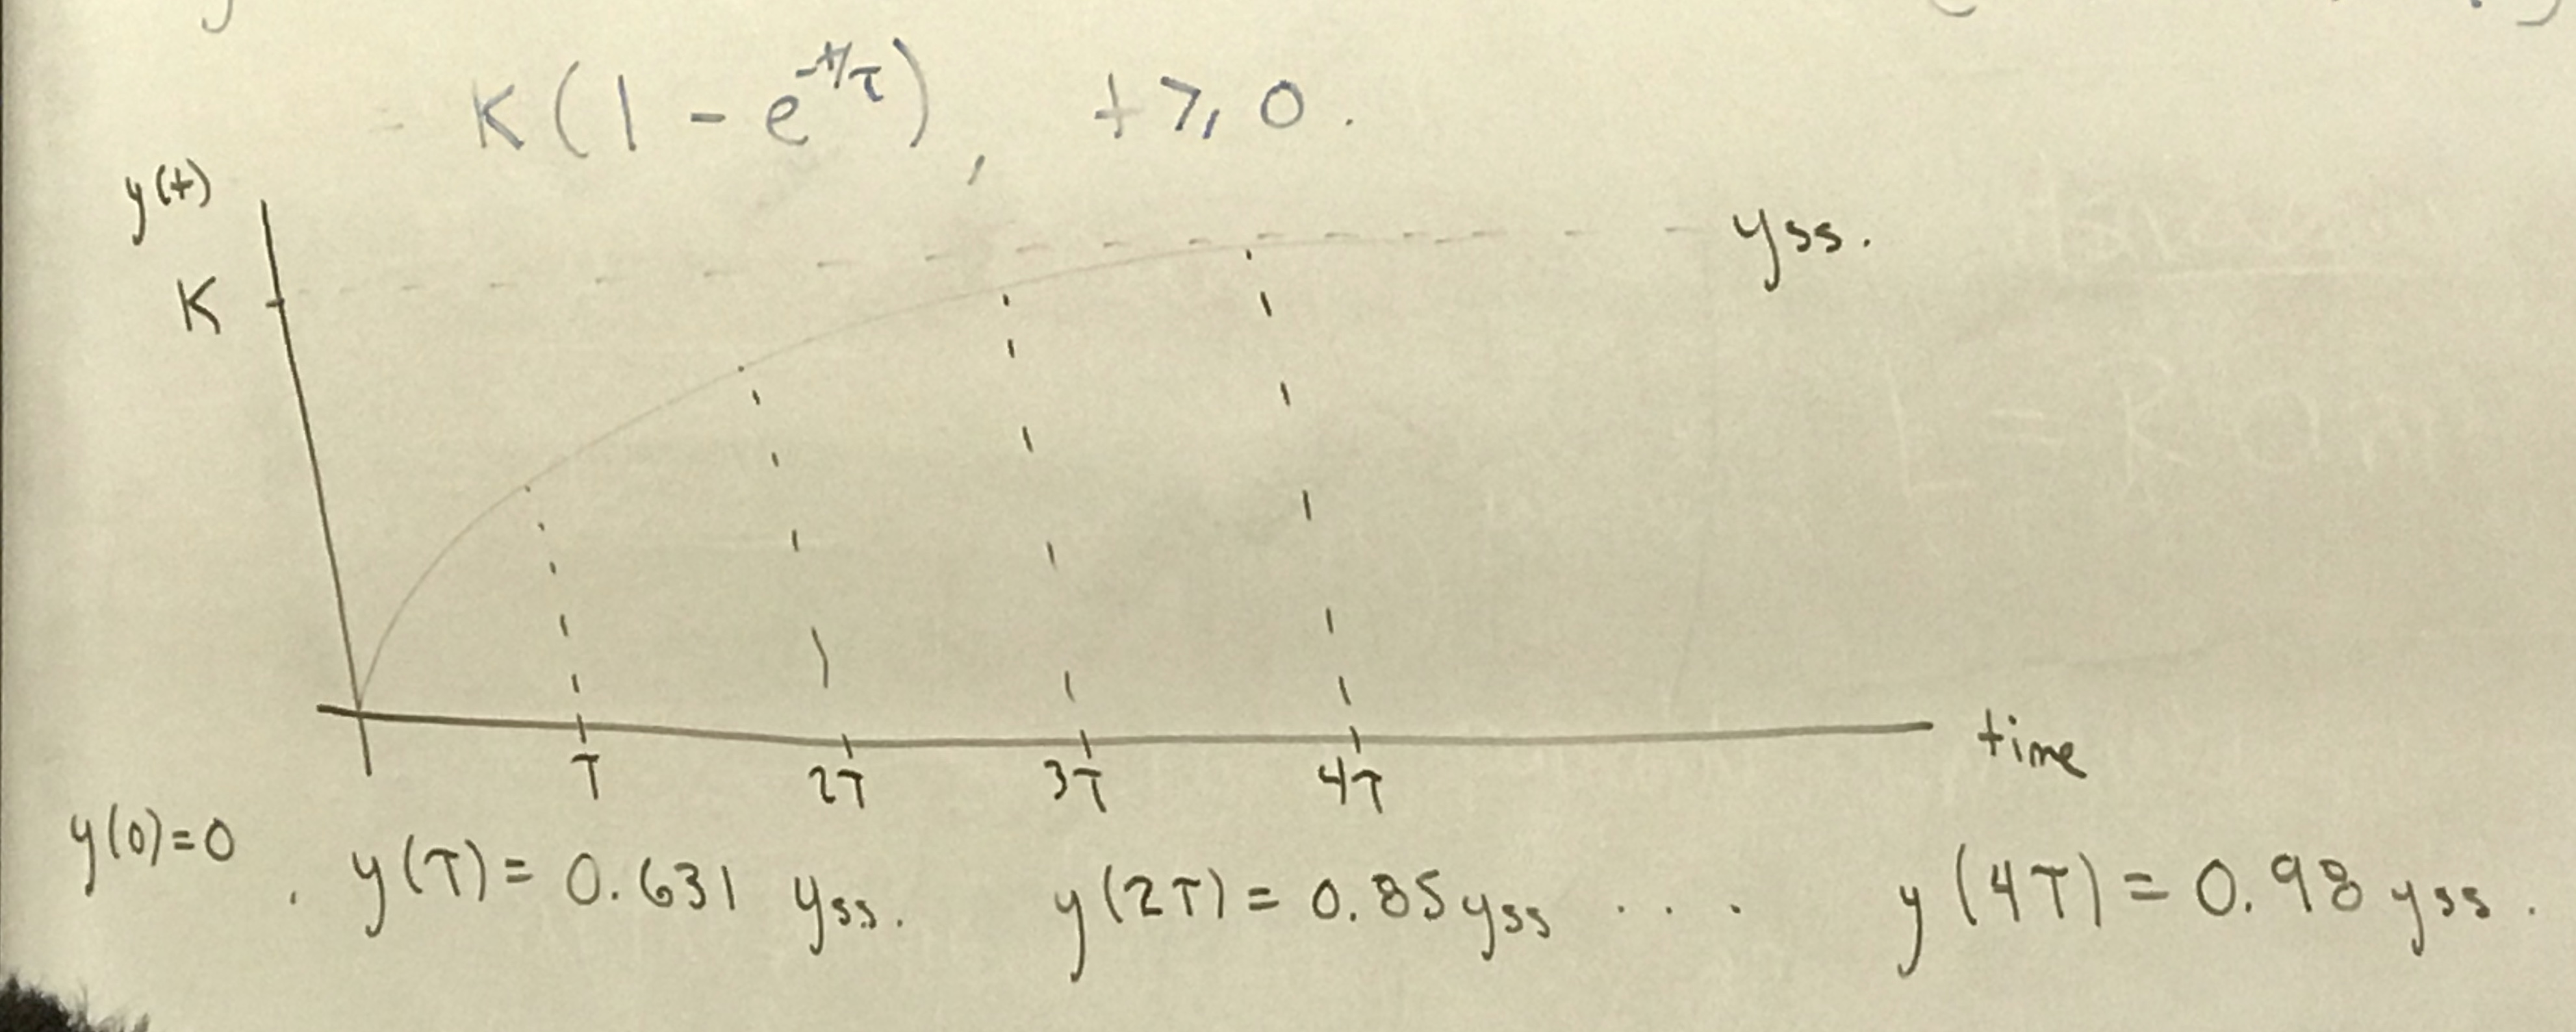 K(1 - e^{-t/τ}), t ≥ 0.
y(t)
K
yss.
τ 2τ 3τ 4τ
time
y(0)=0 . y(τ) = 0.631 yss. y(2τ) = 0.85 yss ... y(4τ) = 0.98 yss.